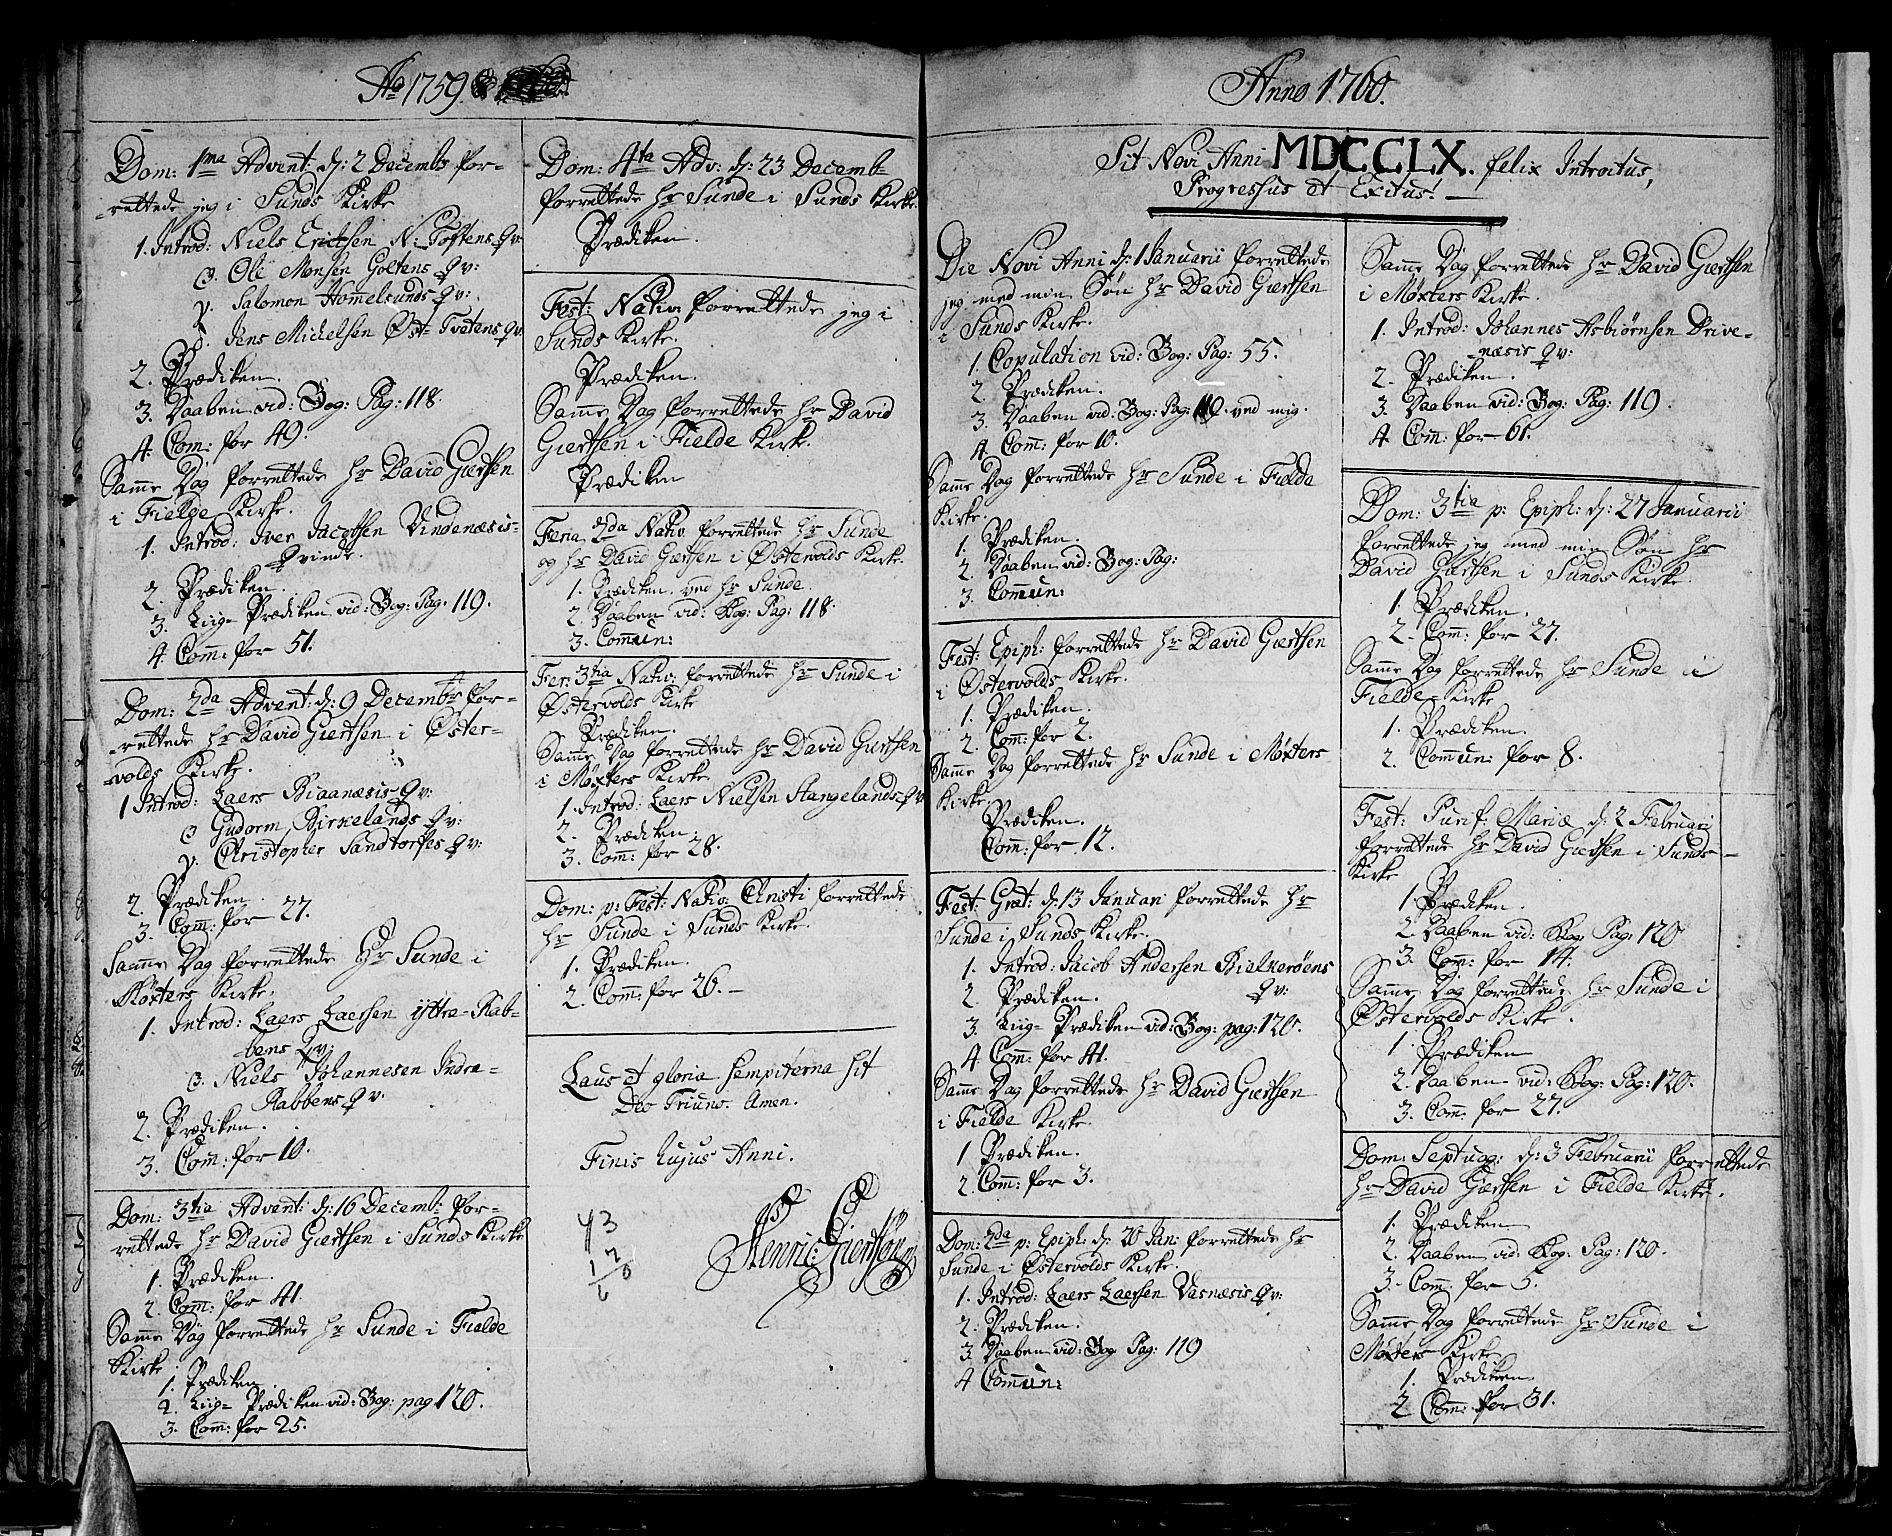 Ao 1759.
Dom: 1ma Advent: d: 2 Decembr for-
-rettede jeg i Sunds Kirke
1. Introd: Niels Erichsen N: Toftens Qv:
Ole Monsen Goltens Qv:
Salomon Hommelsunds Qv:
Jens Michelsen Øst-Tvetens Qv:
2. Prædiken.
3. Daaben vid: Bog: Pag: 118.
4. Com: for 49.
Samme Dag forrettede hr David Giertsen
i Fielde Kirke.
1. Introd: Iver Jacobsen Vindenæsis-
Qvinde.
2. Prædiken.
3. Liig-Prædiken vid: Bog: Pag: 119.
4. Com: for 51.
Dom: 2da Advent: d: 9 Decembr for-
-rettede hr David Giertsen i Øster-
volds Kirke.
1 Introd: Laers Biaanæsis Qv:
Gudorm Birkelands Qv:
Christopher Sandtorfes Qv:
2. Prædiken.
3. Com: for 27.
Samme Dag forrettede Hr Sunde i
Møxters Kirke.
1. Introd: Laers Laersen yttre-Rab-
bens Qv:
Niels Johannesen Indre-
Rabbens Qv:
2. Prædiken.
3. Com: for 10.
Dom: 3tia Advent: d: 16 Decemb: for-
rettede hr David Giertsen i Sunds Kirke
1. Prædiken.
2. Com: for 41.
Samme Dag forrettede hr Sunde i Fielde
Kirke.
1. Prædiken
2. Liig-Prædiken vid: Bog: pag 120.
3. Com: for 25.
Dom: 4ta Adv: d: 23 Decemb
forrettede hr Sunde i Sunds Kirke.
Prædiken.
Fest: Nativ: forrettede jeg i
Sunds Kirke.
Prædiken.
Samme Dag forrettede hr David
Giertsen i Fielde Kirke.
Prædiken
Feria 2da Nativ: forrettede hr Sunde
og hr David Giertsen i Østervolds Kirke.
1. Prædiken ved hr Sunde.
2. Daaben vid: Bog: Pag: 118.
3. Comun:
Fer: 3tia Nativ: forrettede hr Sunde i
Østervolds Kirke
Prædiken.
Samme Dag forrettede hr David Giertsen
i Møxters Kirke
1. Introd: Laers Nielsen Stangelands Qv:
2. Prædiken.
3. Com: for 28.
Dom: p: Fest: Nativ: Christi forrettede
hr Sunde i Sunds Kirke.
1. Prædiken.
2. Com: for 26. -
Laus et gloria sempiterna sit
Deo Triuno. Amen.
Finis hujus Anni.
Henric: Giertsøn
Anno 1760.
Sit Novi Anni MDCCLX. felix Introitus,
Progressus et Exitus! -
Die Novi Anni d: 1 Januarii forrettede
jeg med min Søn hr David Giertsen
i Sunds Kirke.
1. Copulation vid: Bog: Pag: 55.
2. Prædiken.
3. Daaben vid: Bog: Pag: 119. ved mig.
4. Com: for 10.
Samme Dag forrettede hr Sunde i Fielde
Kirke.
1. Prædiken.
2. Daaben vid: Bog: Pag:
3. Comun:
Fest: Epiph: forrettede hr David Giertsen
i Østervolds Kirke.
1. Prædiken.
2. Com: for 2.
Samme Dag forrettede hr Sunde i Møxters
Kirke.
Prædiken.
Com: for 12.
Fest: Græt: d: 13 Januari forrettede hr
Sunde i Sunds Kirke.
1. Introd: Jacob Andersen Bielkerøens
Qv:
2. Prædiken.
3. Liig-Prædiken vid: Bog: pag: 120.
4 Com: for 41.
Samme Dag forrettede hr David Giertsen
i Fielde Kirke.
1 Prædiken.
2. Com: for 3.
Dom: 2da p: Epiph: d: 20 Jan: forrettede hr
Sunde i Østervolds Kirke.
1. Introd: Laers Laersen Vasnæsis Qv:
2. Prædiken.
3 Daaben vid: Bog Pag: 119
4 Comun:
Samme Dag forrettede hr David Giertsen
i Møxters Kirke.
1. Introd: Johannes Asbiørnsen Drive-
-næsis Qv:
2. Prædiken.
3. Daaben vid: Bog: Pag: 119.
4. Com: for 61.
Dom: 3tia p: Epiph: d: 27 Januarii
forrettede jeg med min Søn hr
David Giertsen i Sunds Kirke.
1. Prædiken.
2. Com: for 27.
Samme Dag forrettede hr Sunde i
Fielde Kirke
1. Prædiken.
2. Comun: for 8.
Fest: Purif: Mariæ d: 2 Februarij
forrettede hr David Giertsen i Sunds-
Kirke
1 Prædiken.
2 Daaben vid: Bog Pag: 120
3. Com: for 14.
Samme Dag forrettede hr Sunde i
Østervolds Kirke.
1. Prædiken
2. Daaben vid: Bog: Pag: 120.
3. Com: for 27.
Dom: Septuag: d: 3 Februarii forrettede
hr David Giertsen i Fielde Kirke.
1. Prædiken
2. Daaben vid: Bog: Pag: 120.
3. Com: for 5.
Samme Dag forrettede hr Sunde i
Møxters Kirke
1. Prædiken.
2 Com: for 31.